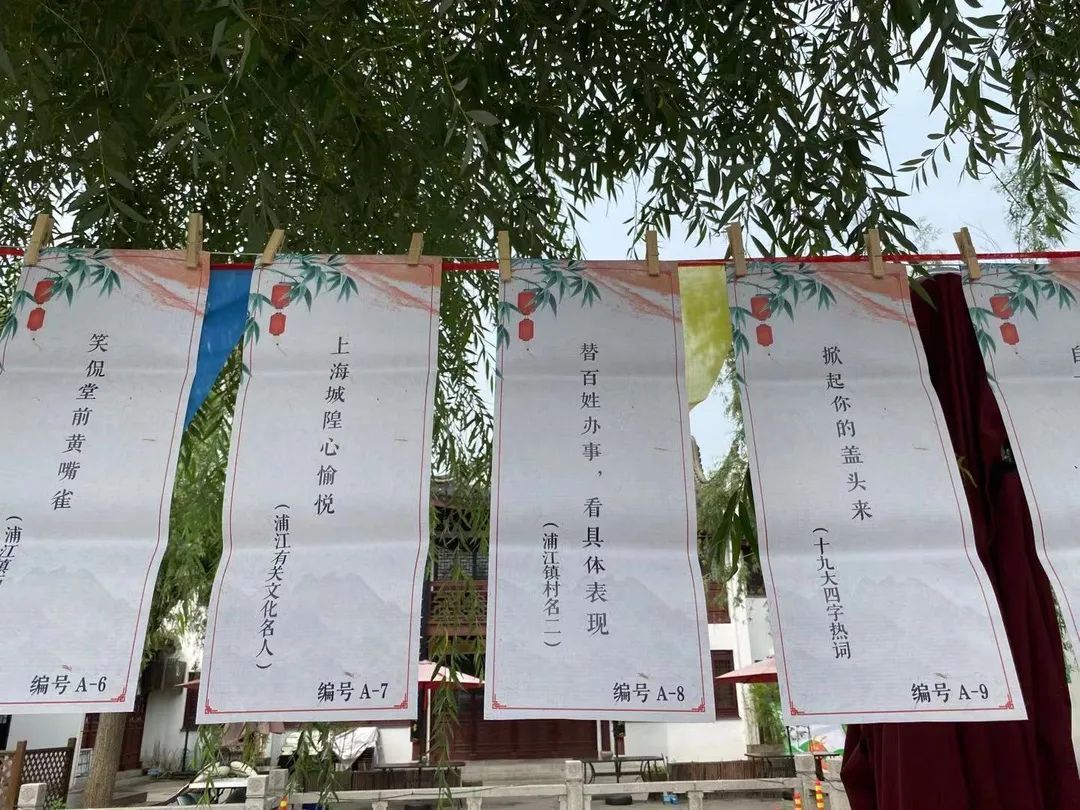 笑侃堂前黄嘴雀
（浦江镇
编号 A-6
上海城隍心愉悦
（浦江有关文化名人）
编号 A-7
替百姓办事，看具体表现
（浦江镇村名二）
编号 A-8
掀起你的盖头来
（十九大四字热词
编号 A-9
自